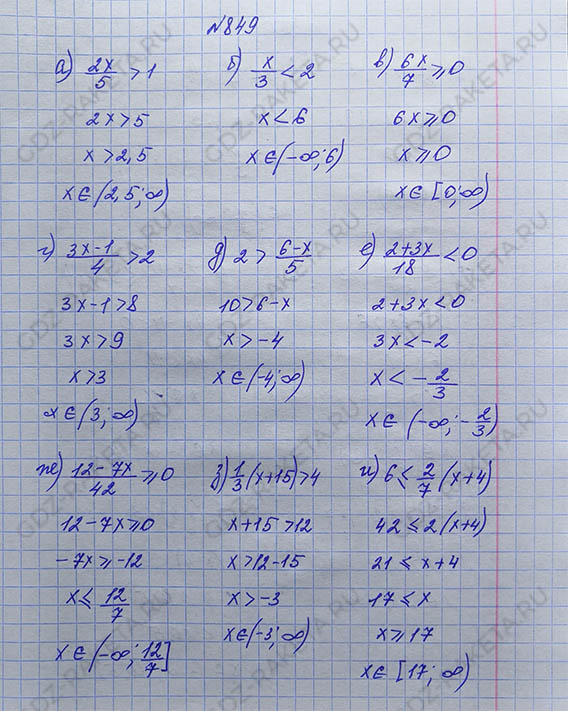 №849
а) 2x/5 > 1
2x > 5
x > 2,5
x ∈ (2,5; ∞)
б) x/3 < 2
x < 6
x ∈ (-∞; 6)
в) 6x/7 ⩾ 0
6x ⩾ 0
x ⩾ 0
x ∈ [0; ∞)
г) (3x-1)/4 > 2
3x-1 > 8
3x > 9
x > 3
x ∈ (3; ∞)
д) 2 > (6-x)/5
10 > 6-x
x > -4
x ∈ (-4; ∞)
е) (2+3x)/18 < 0
2+3x < 0
3x < -2
x < -2/3
x ∈ (-∞; -2/3)
ж) (12-7x)/42 ⩾ 0
12-7x ⩾ 0
-7x ⩾ -12
x ⩽ 12/7
x ∈ (-∞; 12/7]
з) 1/3 (x+15) > 4
x+15 > 12
x > 12-15
x > -3
x ∈ (-3; ∞)
и) 6 ⩽ 2/7 (x+4)
42 ⩽ 2(x+4)
21 ⩽ x+4
17 ⩽ x
x ⩾ 17
x ∈ [17; ∞)
GDZ-RAKETA.RU